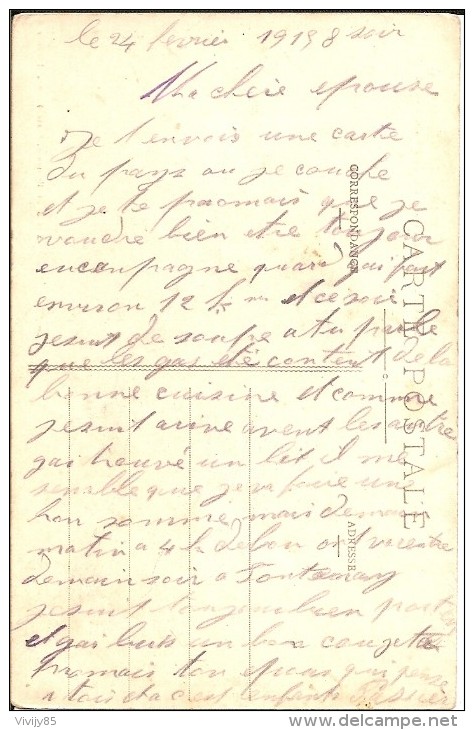 le 24 fevrier 1918 soir
Ma cheie epouse
je t'envois une carte
du pays ou je couche
et je te promais que je
voudre bien etre toujour
encompagne quard jai fait
environ 12 km et ce soir
je suit de soupe a tu parle
que les gas été contant de la
bonne cuisine et comme
je suit arive avent les autre
gai trouvé un lit il me
semble que je vu faire une
bon somme mais demain
matin a 4 h debou on
demain soir a Fontenay
je suit toujour bien portan
et gai buts un bon coup ta
promais ton qui pense
a tois enfants
CARTE POSTALE
CORRESPONDANCE
ADRESSE
© Vivijy85